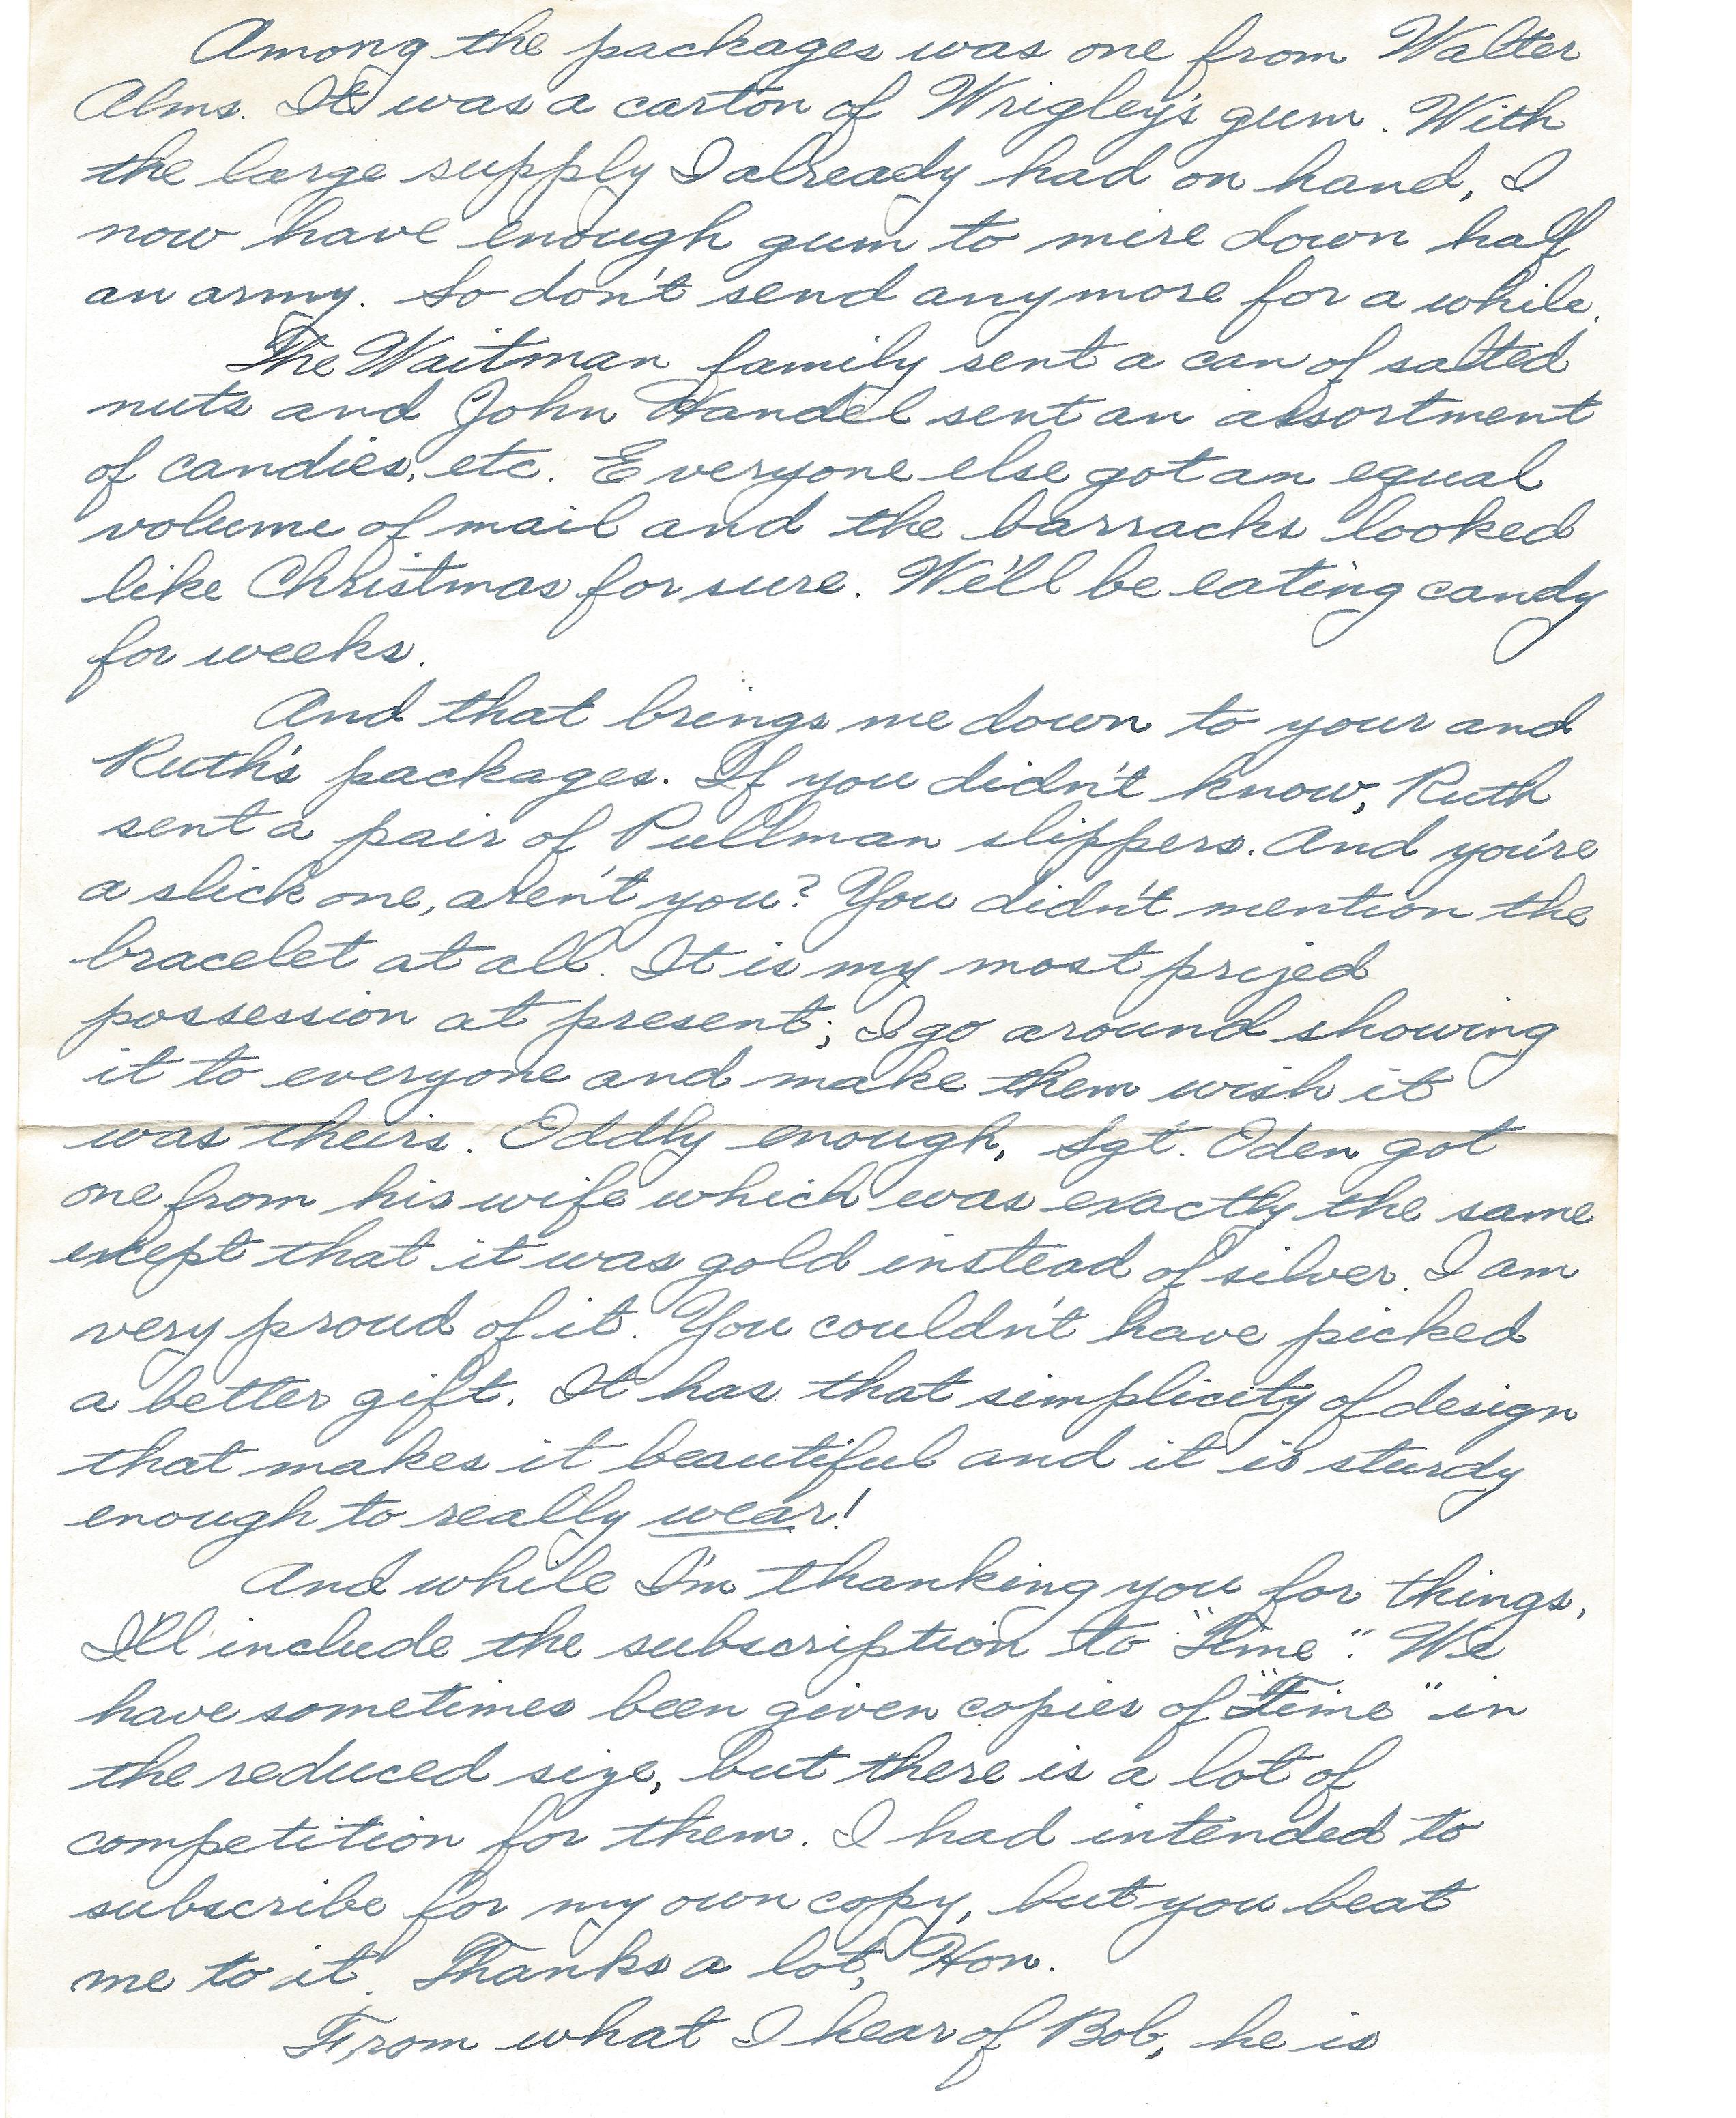 Among the packages was one from Walter
Alms. It was a carton of Wrigley's gum. With
the large supply I already had on hand, I
now have enough gum to mire down half
an army. So don't send anymore for a while.
The Waitman family sent a can of salted
nuts and John Handel sent an assortment
of candies, etc. Everyone else got an equal
volume of mail and the barracks looked
like Christmas for sure. We'll be eating candy
for weeks.
And that brings me down to your and
Ruth's packages. If you didn't know, Ruth
sent a pair of Pullman slippers. And you're
a slick one, aren't you? You didn't mention the
bracelet at all. It is my most prized
possession at present; I go around showing
it to everyone and make them wish it
was theirs. Oddly enough, Sgt. Oden got
one from his wife which was exactly the same
except that it was gold instead of silver. I am
very proud of it. You couldn't have picked
a better gift. It has that simplicity of design
that makes it beautiful and it is sturdy
enough to really wear!
And while I'm thanking you for things,
I'll include the subscription to "Time". We
have sometimes been given copies of "Time" in
the reduced size, but there is a lot of
competition for them. I had intended to
subscribe for my own copy, but you beat
me to it. Thanks a lot, Hon.
From what I hear of Bob, he is